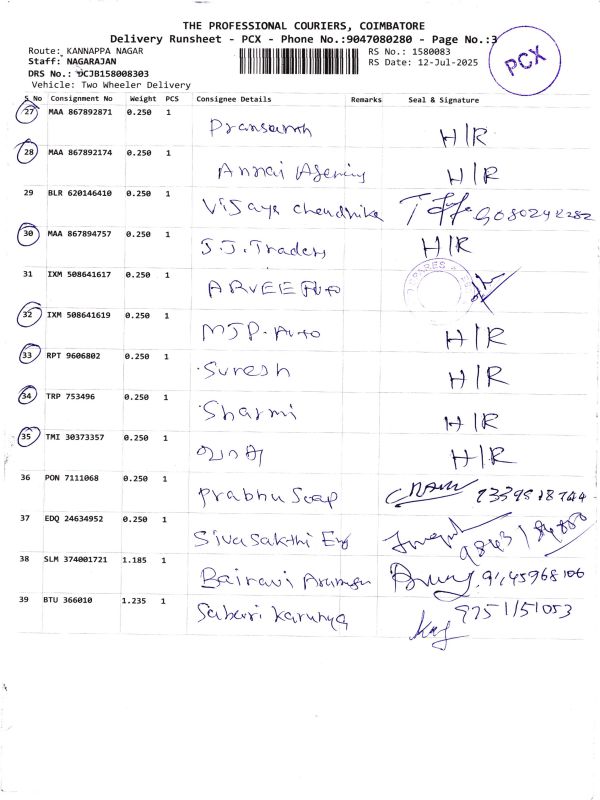 THE PROFESSIONAL COURIERS, COIMBATORE
Delivery Runsheet - PCX - Phone No.:9047080280 - Page No.:3
Route: KANNAPPA NAGAR RS No.: 1580083
Staff: NAGARAJAN RS Date: 12-Jul-2025
DRS No.: DCJB158008303
Vehicle: Two Wheeler Delivery
PCX
S No Consignment No Weight PCS Consignee Details Remarks Seal & Signature
27 MAA 867892871 0.250 1 H/R
28 MAA 867892174 0.250 1 Annai Agency H/R
29 BLR 620146410 0.250 1 Vijaya Chandrika
30 MAA 867894757 0.250 1 J.J. Traders H/R
31 IXM 508641617 0.250 1 ARVEE Auto
32 IXM 508641619 0.250 1 MJP. Auto H/R
33 RPT 9606802 0.250 1 Suresh H/R
34 TRP 753496 0.250 1 Sharmi H/R
35 TMI 30373357 0.250 1 H/R
36 PON 7111068 0.250 1 Prabhu Soap
37 EDQ 24634952 0.250 1 Siva Sakthi Eng
38 SLM 374001721 1.185 1 Bairavi
39 BTU 366010 1.235 1 Sabari Karunya 9751151053